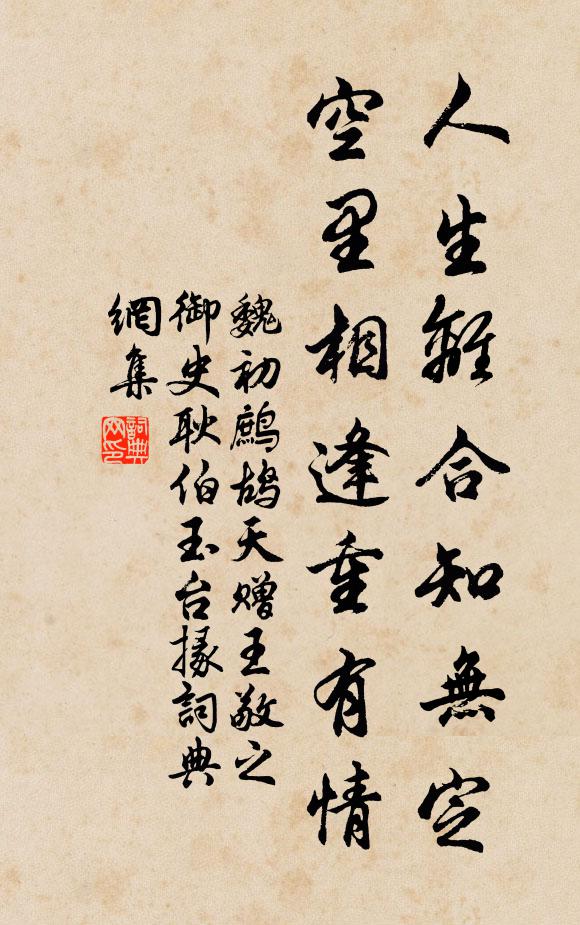 人生離合知無定
空里相逢重有情
魏初鷓鴣天赠王敬之
御史耿伯玉台掾詞典
網集
詞典
网印